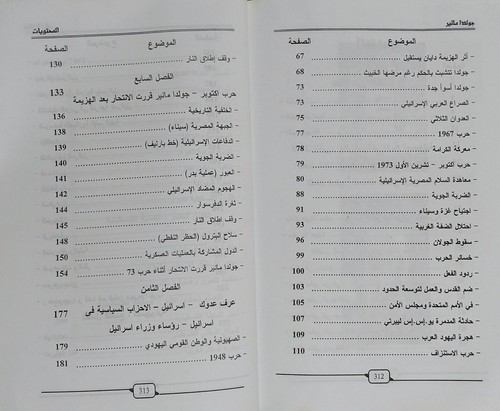 جولدا مائير
الموضوع الصفحة
- أثر الهزيمة دايان يستقيل 67
- جولدا تتشبث بالحكم رغم مرضها الخبيث 68
- جولدا أسوأ جدة 73
- الصراع العربي الإسرائيلي 73
- العدوان الثلاثي 75
- حرب 1967 77
- معركة الكرامة 78
- حرب أكتوبر - تشرين الأول 1973 79
- معاهدة السلام المصرية الإسرائيلية 80
- الضربة الجوية 88
- اجتياح غزة وسيناء 91
- احتلال الضفة الغربية 93
- سقوط الجولان 96
- خسائر الحرب 99
- ردود الفعل 100
- ضم القدس والعمل لتوسعة الحدود 103
- في الأمم المتحدة ومجلس الأمن 105
- حادثة المدمرة يو.إس.إس ليبرتي 107
- هجرة اليهود العرب 109
- حرب الاستنزاف 110
312
المحتويات
الموضوع الصفحة
- وقف إطلاق النار 130
الفصل السابع
حرب أكتوبر - جولدا مائير قررت الانتحار بعد الهزيمة 133
- الخلفية التاريخية 136
- الجبهة المصرية (سيناء) 138
- الدفاعات الإسرائيلية (خط بارليف) 139
- الضربة الجوية 140
- العبور (عملية بدر) 141
- الهجوم المضاد الإسرائيلي 142
- ثغرة الدفرسوار 144
- وقف اطلاق النار 145
- سلاح البترول (الحظر النفطي) 148
- الدول المشاركة بالعمليات العسكرية 150
- جولدا مائير قررت الانتحار أثناء حرب 73 154
الفصل الثامن
عرف عدوك - اسرائيل - الاحزاب السياسية فى 177
اسرائيل - رؤساء وزراء اسرائيل
- الصهيونية والوطن القومي اليهودي 179
- حرب 1948 181
313